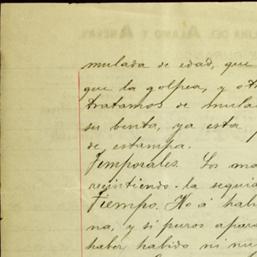 mulada de edad, que
que la golpea, y otr
tratamos de mula
su benta, ya esta
de estampa.
Temporales. Los ma
resintiendo la seguia
Tiempo. No á habi
na, y si puros apara
haber habido ni nu